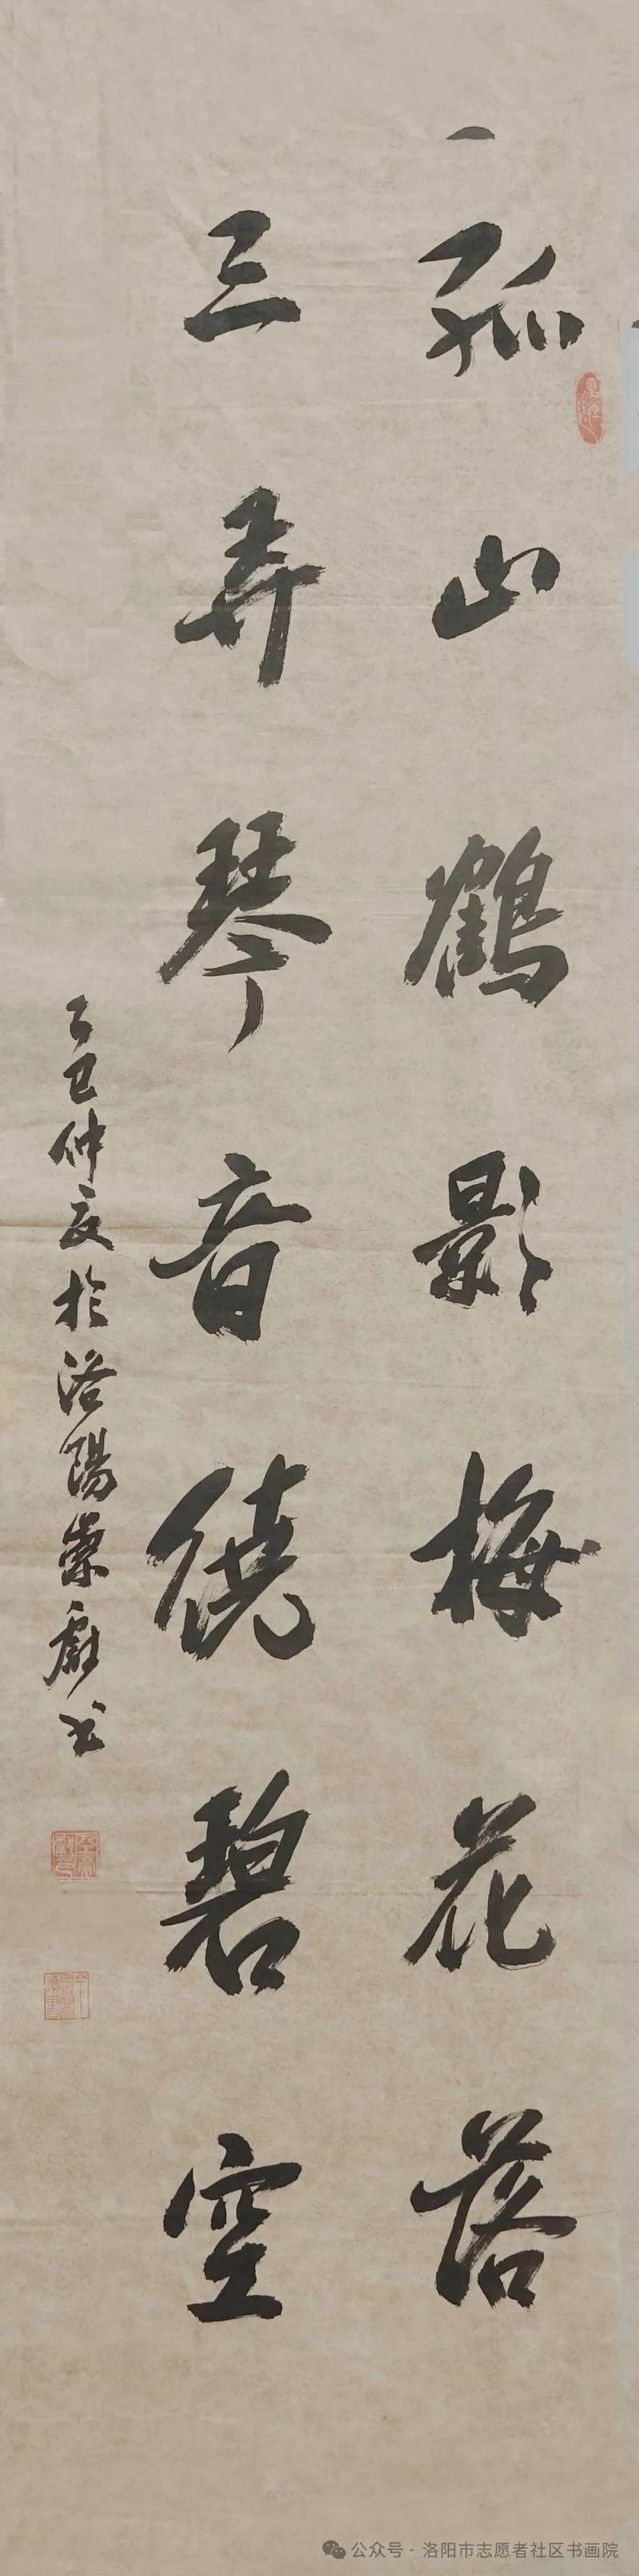 孤山鶴影梅花落
三弄琴音繞碧空
乙巳仲夏於洛陽崇献书
公众号 · 洛阳市志愿者社区书画院